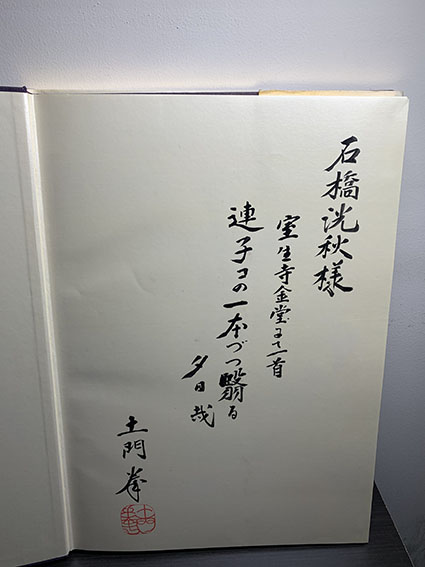 石橋洸秋様
室生寺金堂にて一首
連子の一本づつ翳る
夕日哉
土門拳